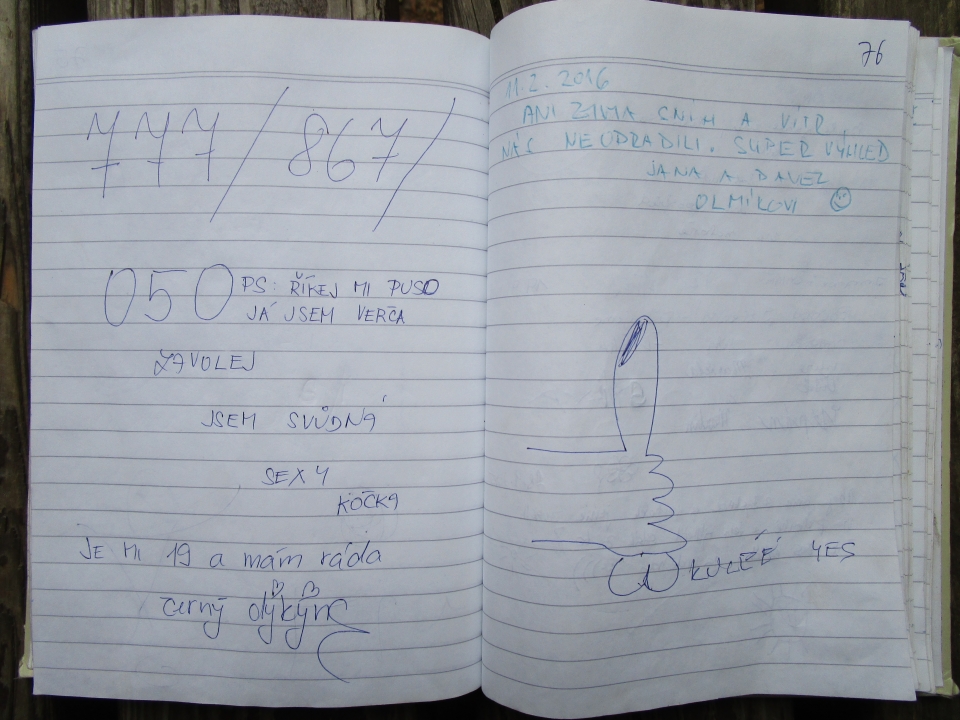 777/867/
050 PS: ŘÍKEJ MI PUSO
JÁ JSEM VERČA
ZAVOLEJ
JSEM SVŮDNÁ
SEXY
KOČKA
JE MI 19 a mám ráda
černý
76
11.2.2016
ANI ZIMA SNÍH A VÍTR,
NÁS NEODRADILI. SUPER VÝHLED
JANA A
☺
KULEÉÉ YES